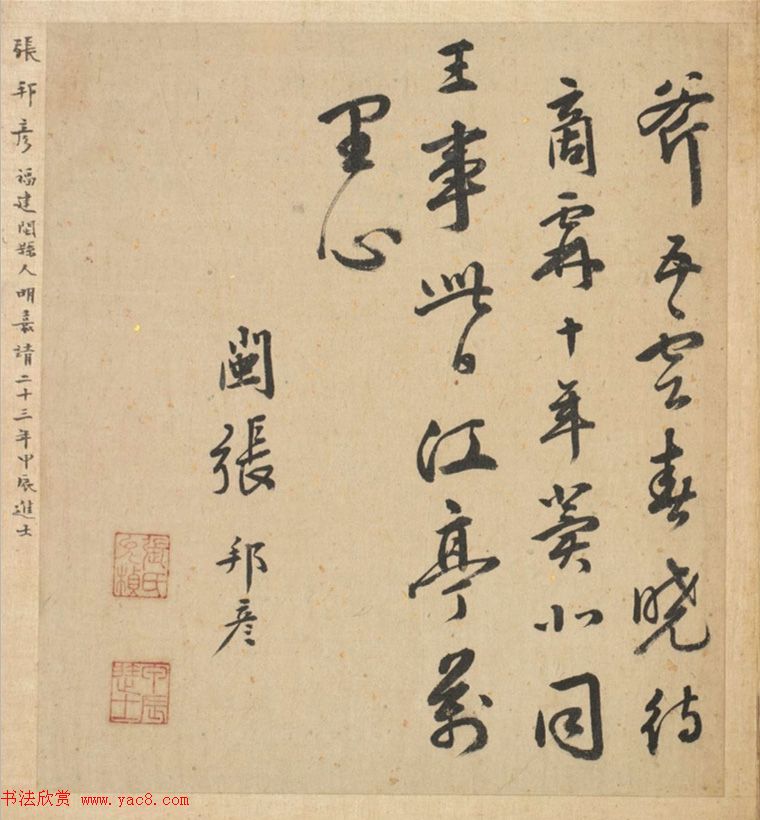 雲春曉待
商霖十年冀北同
王事此日江亭萬
里心
閩張邦彥
甲辰進士
張邦彥福建閩縣人明嘉靖二十三年甲辰進士
书法欣赏 www.yac8.com